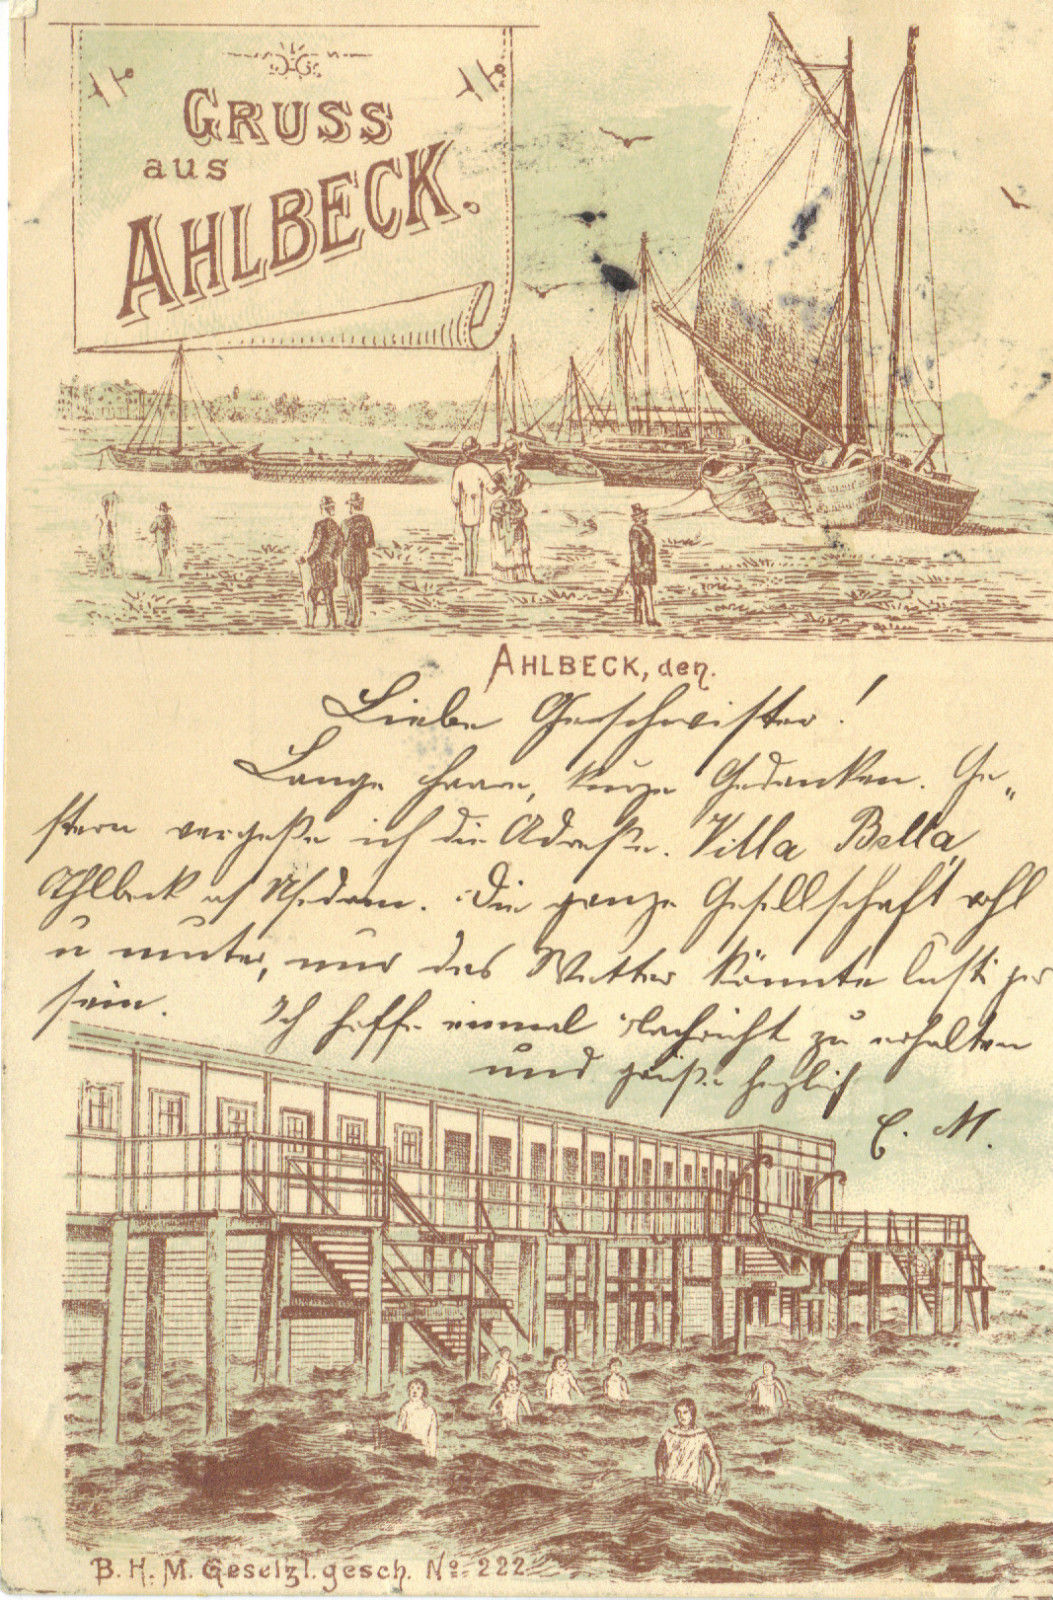 GRUSS
aus
AHLBECK.
AHLBECK, den.
Liebe Geschwister!
Lange Haare, kurze Gedanken. Ge„
stern vergaße ich die Adreße. Villa Bella,
Ahlbeck auf Usedom. Die ganze Gesellschaft wohl
u munter, nur das Wetter könnte lustiger
sein. Ich hoffe einmal Nachricht zu erhalten
und grüße herzlich
C. M.
B. H. M. Gesetzl. gesch. No. 222